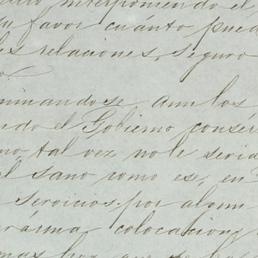 interponiendo el
su favor cuánto pued
les relaciones, seguro
o
minandose, aun los
ndo el Gobierno conser
mo, tal vez no le seria
el sano como es, en
servicios por algun
arma, colocacion,
mas